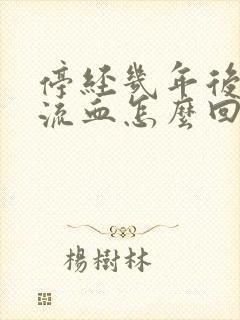 停經幾年後
流血怎麼回
楊樹林